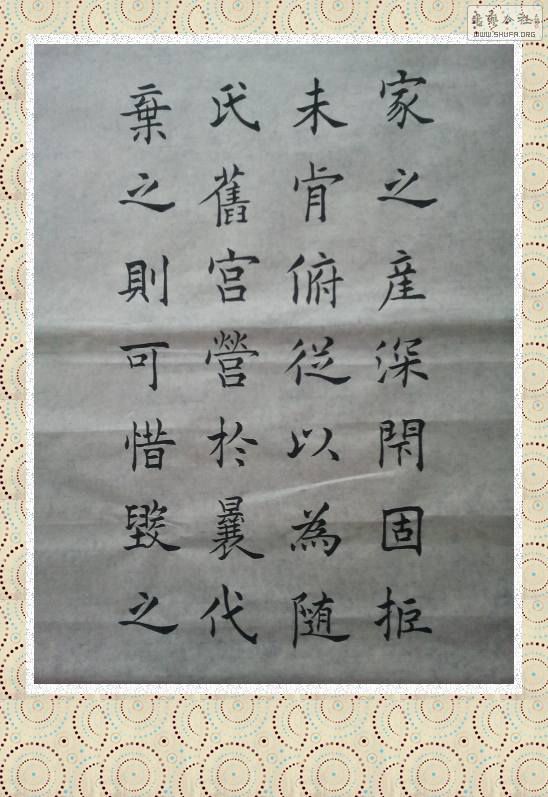 家之産深閇固拒
未肯俯從以為随
氏舊宮營於曩代
棄之則可惜毀之
WWW.SHUFA.ORG